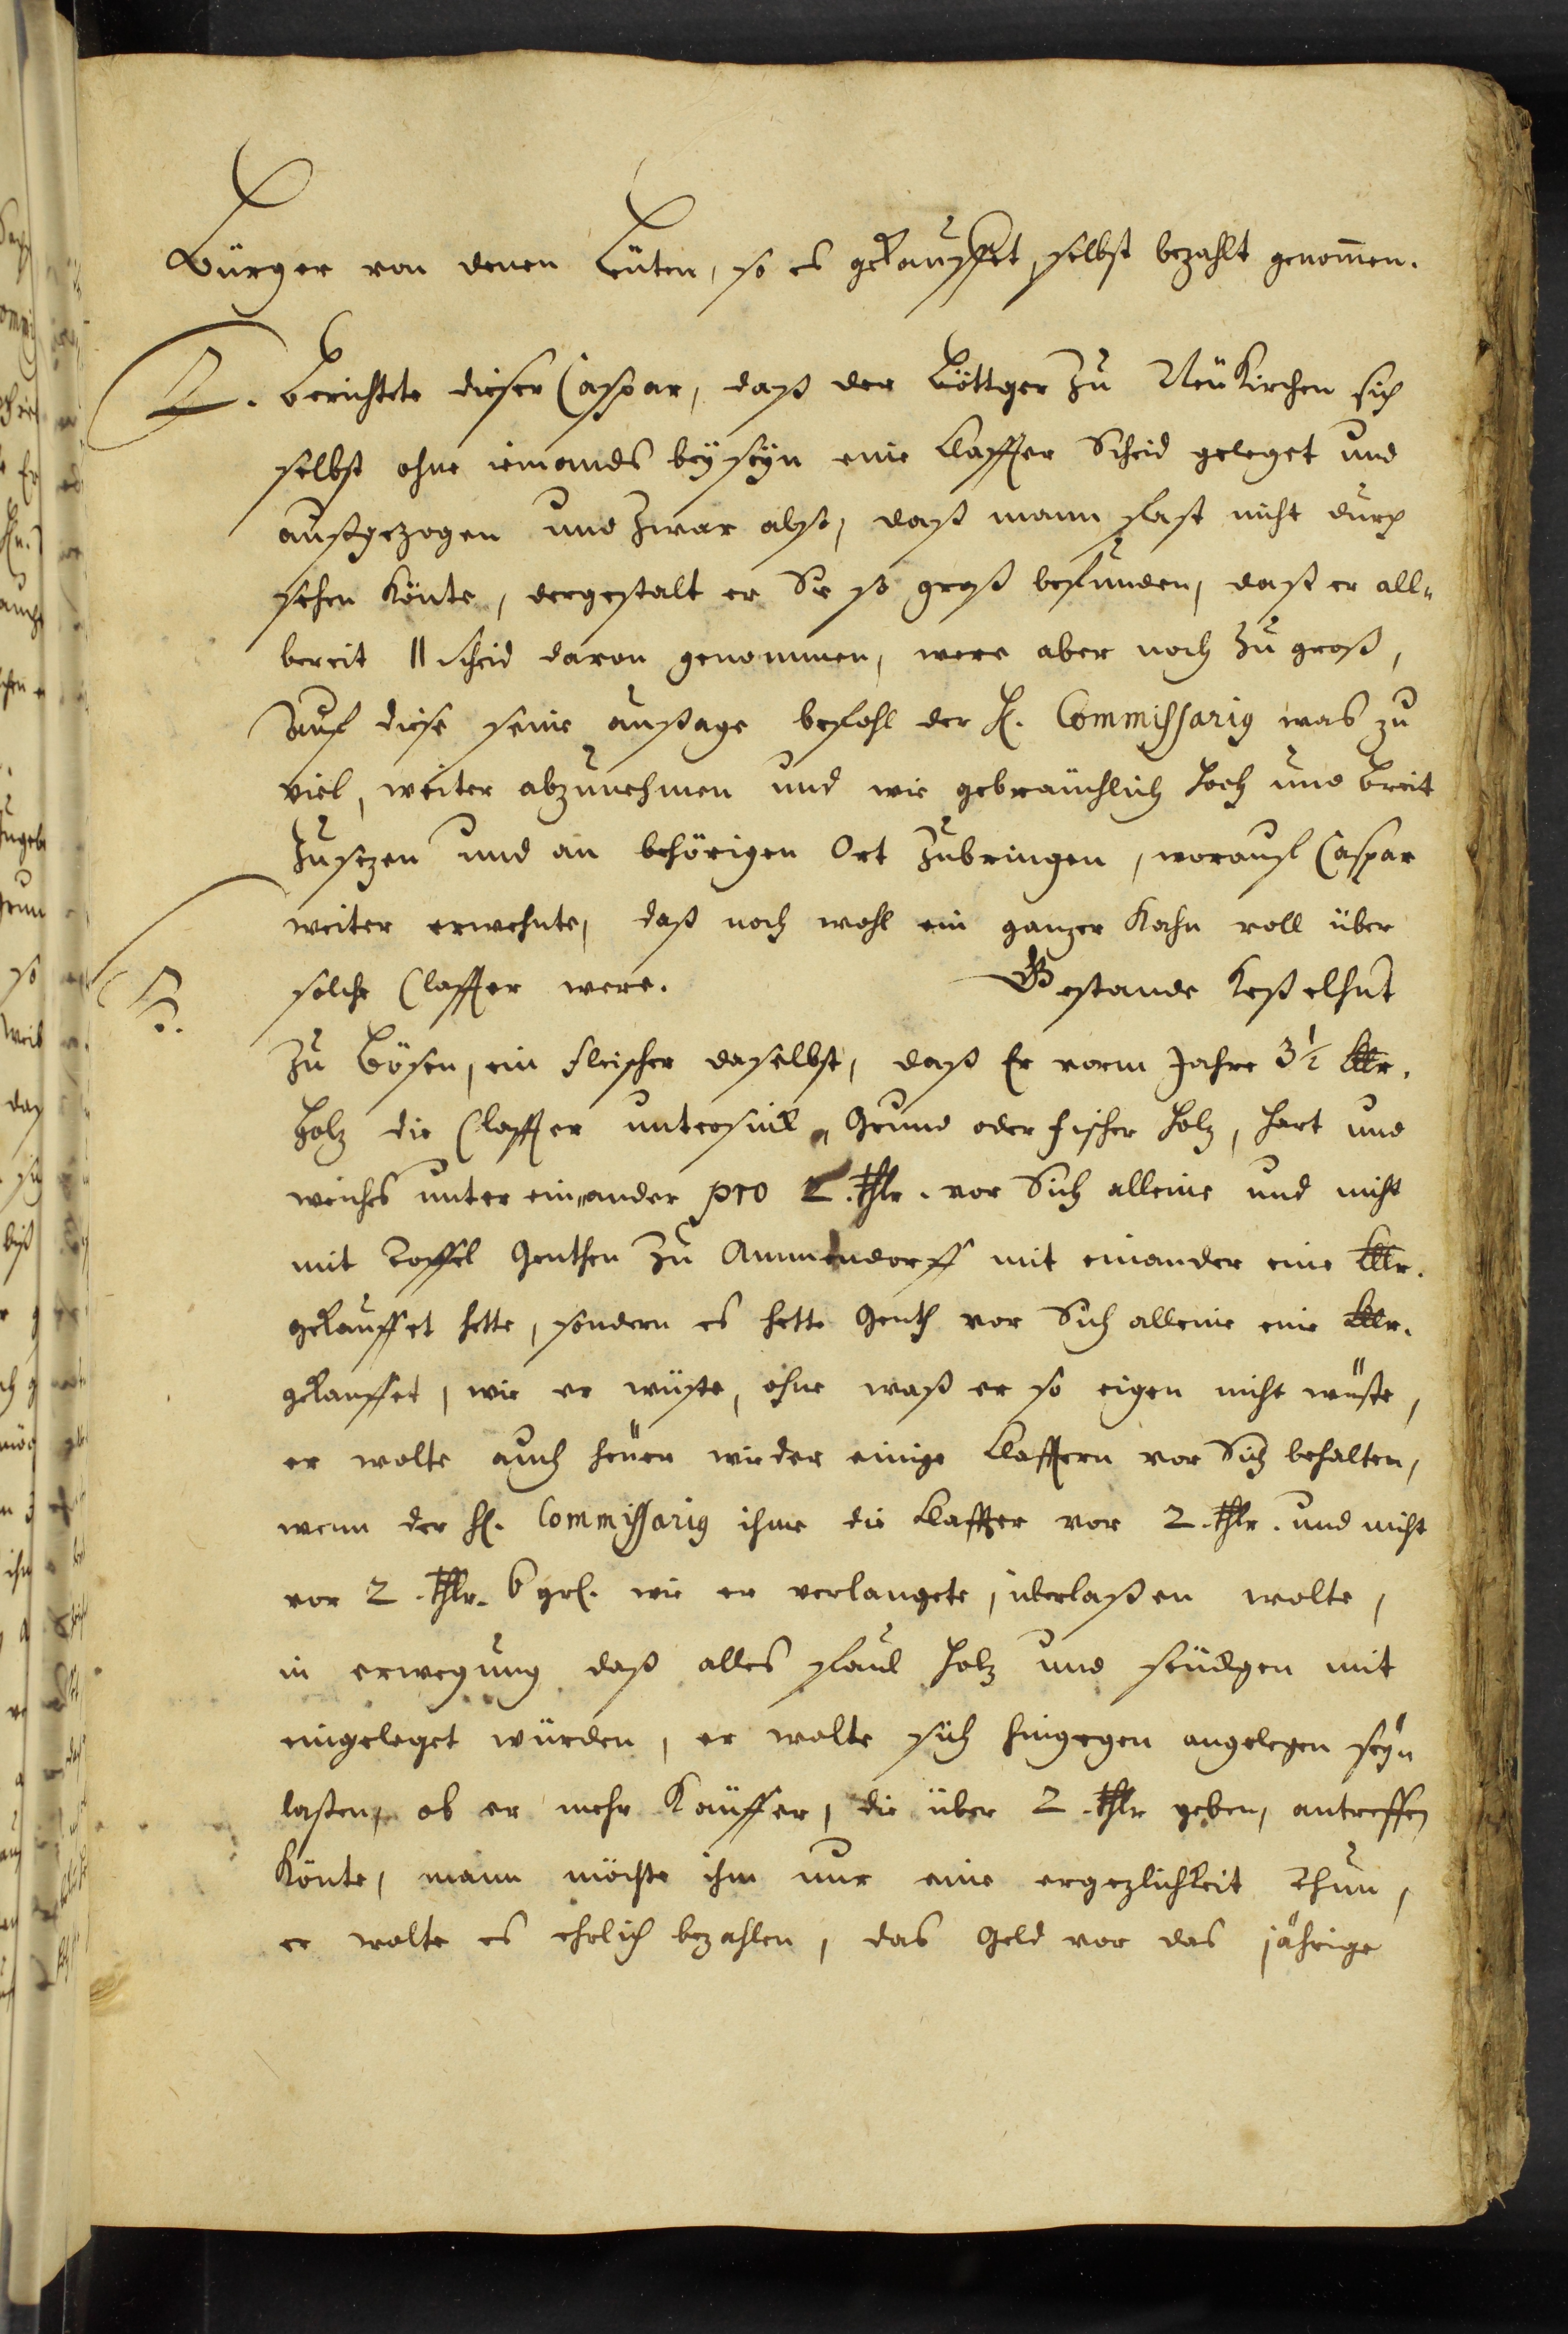 Bürger von denen Leuten, so es gekauffet, selbst bezahlt genom̃en.
2. Berichtete dieser Caspar, daß der Böttger zu Neükirchen sich
selbst ohne iemands beyseyn eine Claffter Scheid geleget und
außgezogen und zwar also, daß mann fast nicht durch
sehen könte, dergestalt er Sie so groß befunden, daß er all-
bereit 11 scheid davon genommen, were aber noch zu groß,
Auf diese seine außage befahl der H. Commissarig was zu
viel, weiter abzunehmen und wie gebräuchlich hoch und breit
zusezen und an behörigen Ort zubringen, worauf Caspar
weiter erwehnte, daß noch wohl ein ganzer Kahn voll über
solche Claffter were. Gestande Keßelhut
3.
zu Bösen, ein fleischer daselbst, daß Er vorm Jahre 3½ Klftr.
Holz die Claffter Grund oder fischer Holz, hart und
weiches unter einander pro 2. thlr. vor Sich alleine und nicht
mit Toffel Genthen zu Ammendorff mit einander eine Klftr.
gekauffet hette, sondern es hette Genth vor Sich alleine eine Klftr.
gekauffet, wie er wüste, ohne waß er so eigen nicht wüste,
er wolte auch heüer wieder einige Clafftern vor Sich behalten,
wenn der H. Commissarig ihme die Claffter vor 2. thlr. und nicht
vor 2. thlr. 6 grl. wie er verlangete, überlaßen wolte,
in erwegung daß alles faul Holz und mit
eingeleget würden, er wolte sich hingegen angelegen seyn
laßen, ob er mehr Käuffer, die über 2. thlr geben, antreffen
könte, mann möchte ihm nur eine ergezlichkeit thun,
er wolte es ehrlich bezahlen, das Geld vor das jährige